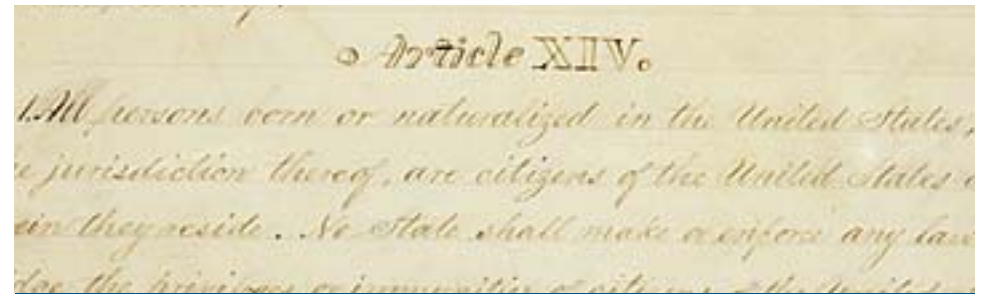 Article XIV.
1. All persons born or naturalized in the United States,
e jurisdiction thereof, are citizens of the United States
ein they reside. No State shall make or enforce any law
dge the privileges or immunities of citizens of the United